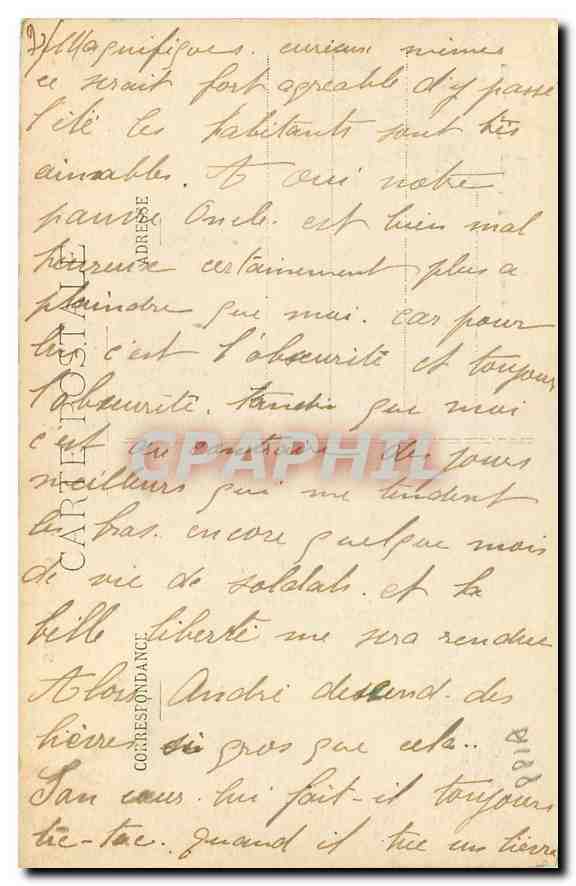 2/ Magnifiques. curieux mêmes
ce serait fort agreable d'y passé
l'été les habitants sont très
aimables. A oui notre
pauvre Oncle. est bien mal
heureuse certainement plus a
plaindre que moi. car pour
lui c'est l'obscurité et toujours
l'obscurité. tandis que moi
c'est au contraire des jours
meilleurs qui me tendent
les bras. encore quelque mois
de vie de soldats. et la
belle liberté me sera rendue
Alors André descend. des
lièvres si gros que cela..
Son cœur. lui fait-il toujours
tic-tac. Quand il tue un lièvre
CARTE POSTALE
ADRESSE
CORRESPONDANCE
CPAPHIL